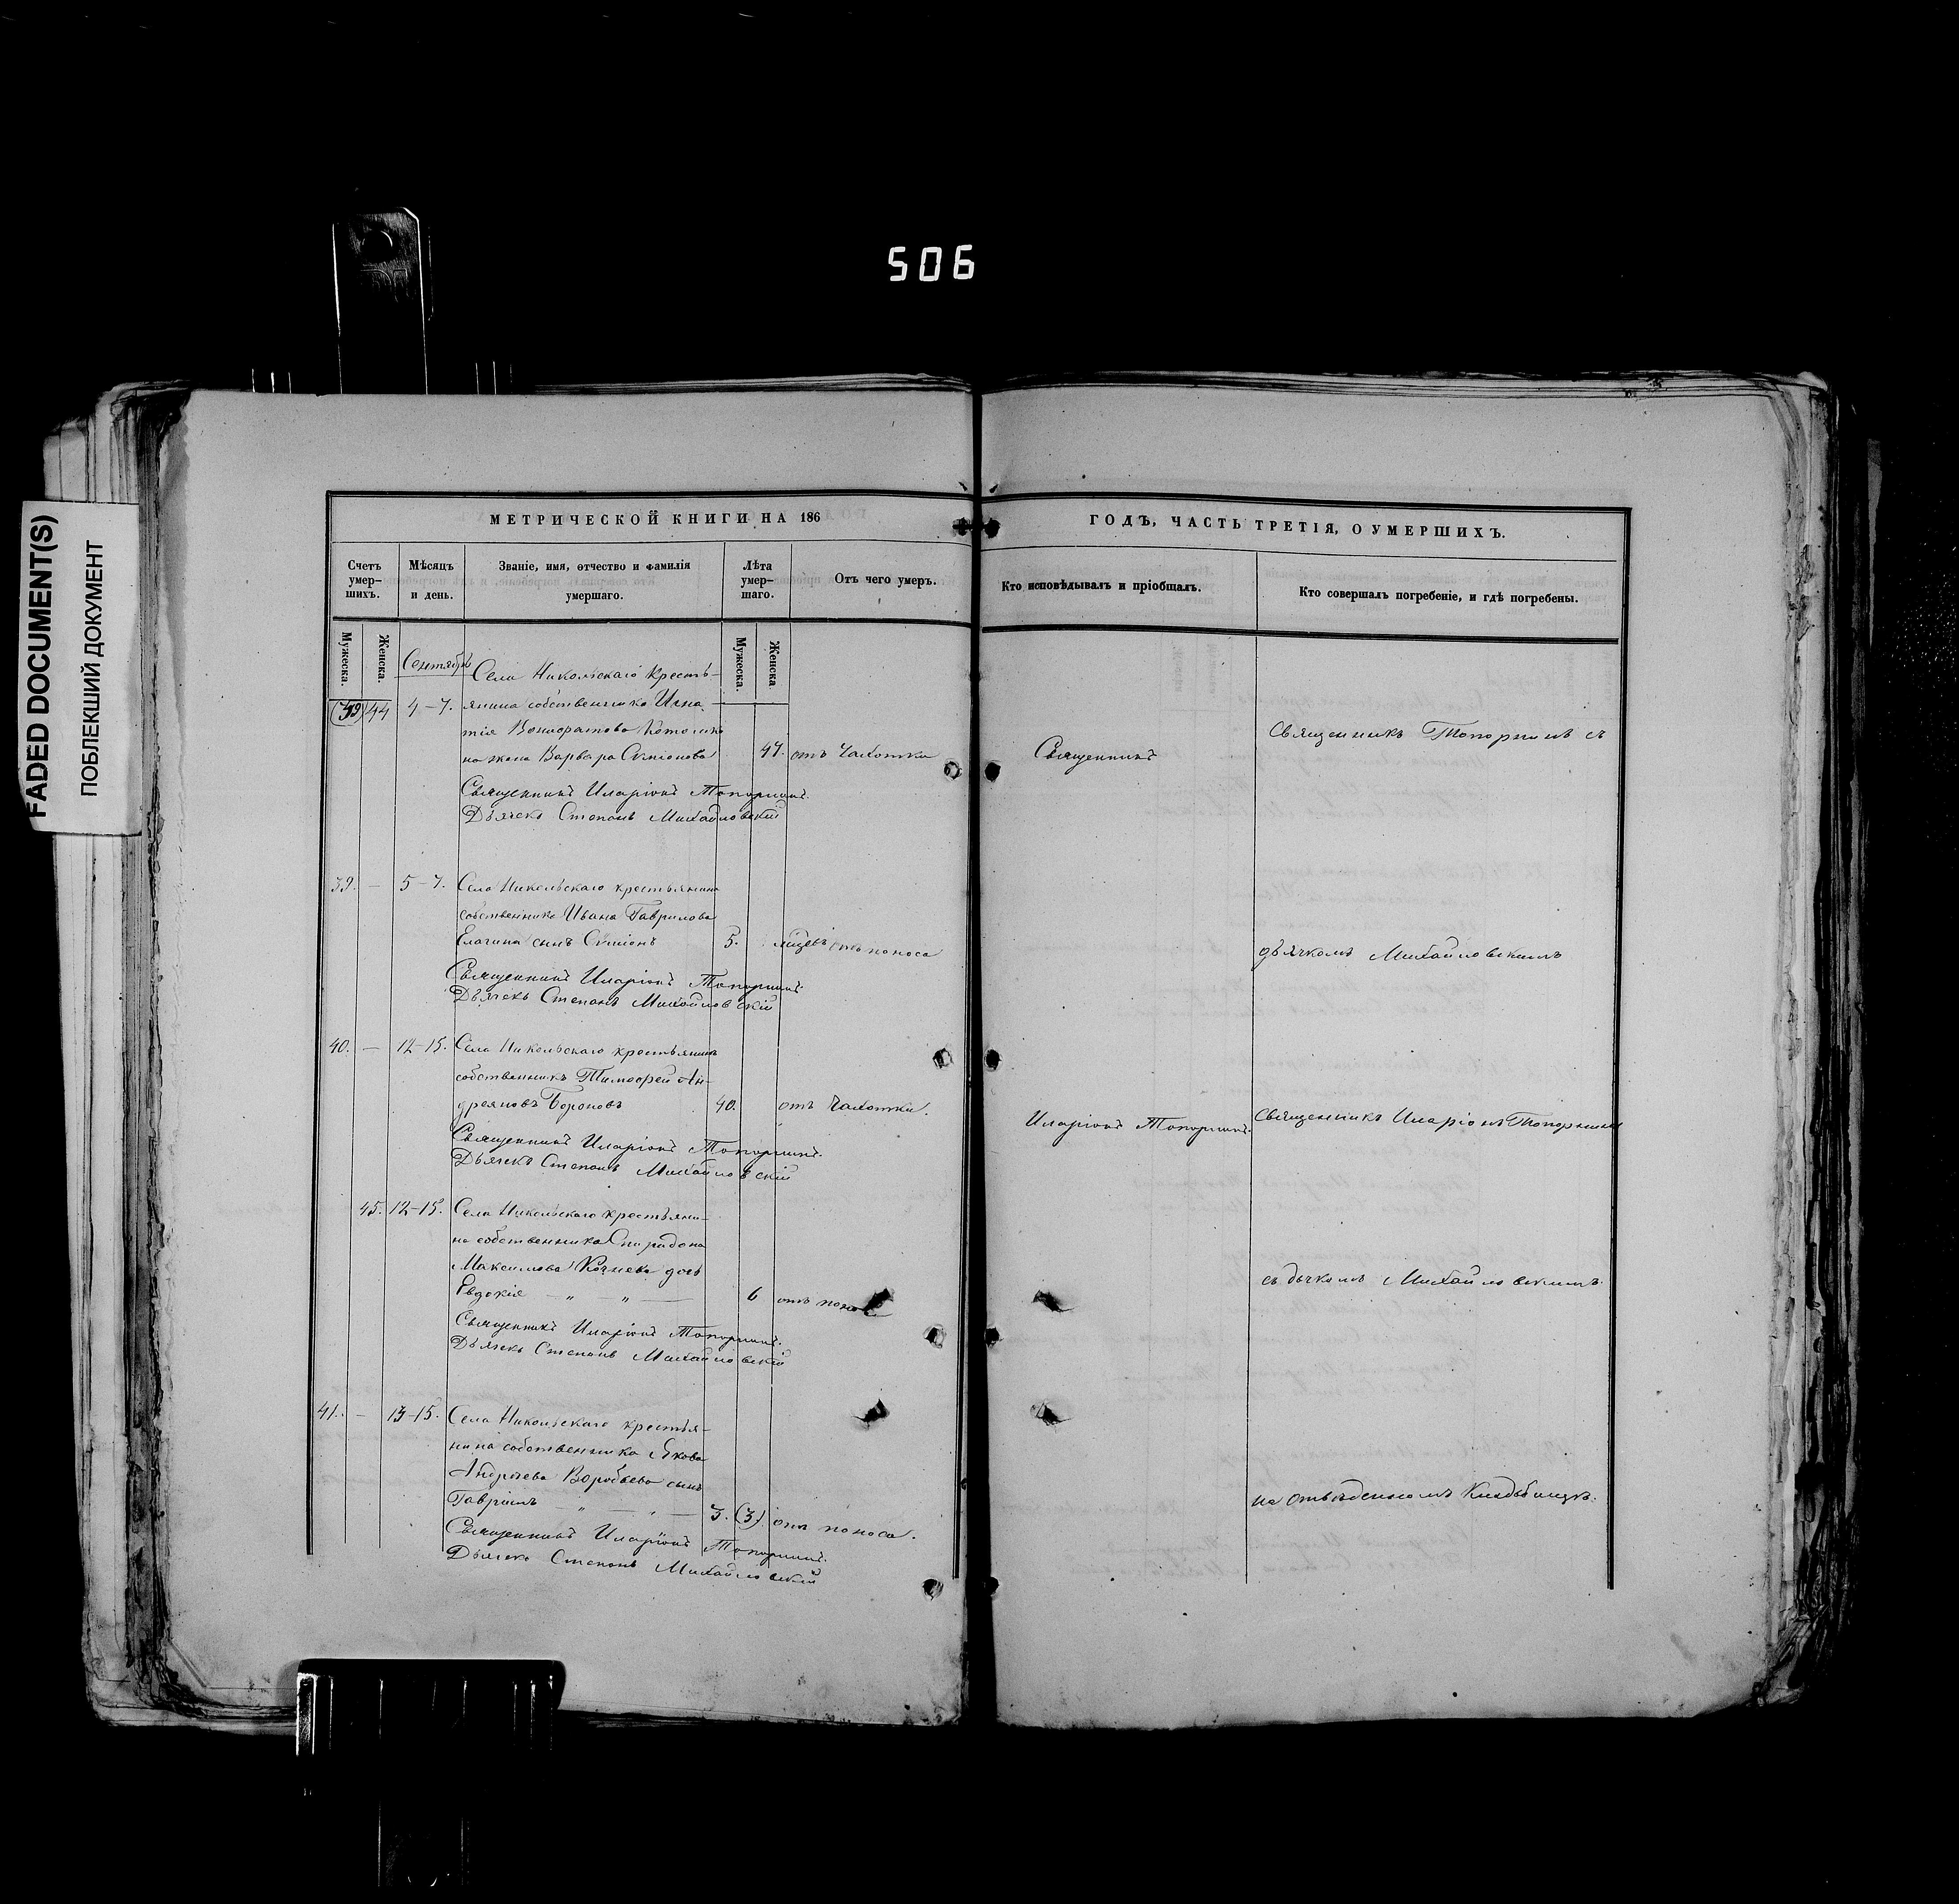 506
FADED DOCUMENT(S)
ПОБЛЕКШИЙ ДОКУМЕНТ
МЕТРИЧЕСКОЙ КНИГИ НА 186
Счетъ умер-шихъ.
Мѣсяцъ и день.
Званіе, имя, отчество и фамилія умершаго.
Лѣта умер-шаго.
Отъ чего умеръ.
Мужеска.
Женска.
Мужеска.
Женска
Сентябрь
Села Никольскаго кресть-
44 4-7. янина собственника Игна
тія
на жена Варвара Симіонова 47. отъ Чахотки
Священникъ Иларіонъ Топорнинъ.
Дьячекъ Степанъ Михайловскій
39. — 5-7. Села Никольскаго крестьянина
собственника Ивана Гаврилова
Елагина сынъ Симіонъ 5. мѣсцевъ отъ поноса
Священникъ Иларіонъ Топорнинъ.
Дьячекъ Степанъ Михайловскій
40. — 12-15. Села Никольскаго крестьянинъ
собственникъ Тимофей Ан-
дреяновъ 40. отъ Чахотки.
Священникъ Иларіонъ Топорнинъ.
Дьячекъ Степанъ Михайловскій
45. 12-15. Села Никольскаго крестьяни-
на собственника Спиридона
Максимова дочь
Евдокія — „ — „ — 6 отъ поноса
Священникъ Иларіонъ Топорнинъ.
Дьячекъ Степанъ Михайловскій
41. — 13-15. Села Никольскаго крестья-
нина собственника Якова
Андреева Воробьева сынъ
Гавріилъ — „ — „ — 3. (3) отъ поноса.
Священникъ Иларіонъ Топорнинъ.
Дьячекъ Степанъ Михайловскій
ГОДЪ, ЧАСТЬ ТРЕТІЯ, О УМЕРШИХЪ.
Кто исповѣдывалъ и пріобщалъ.
Кто совершалъ погребеніе, и гдѣ погребены.
Священникъ
Иларіонъ Топорнинъ.
Священникъ Топорнинъ съ
дьячкомъ Михайловскимъ
Священникъ Иларіонъ Топорнинъ
съ дьчкомъ Михайловскимъ.
на отвѣденномъ